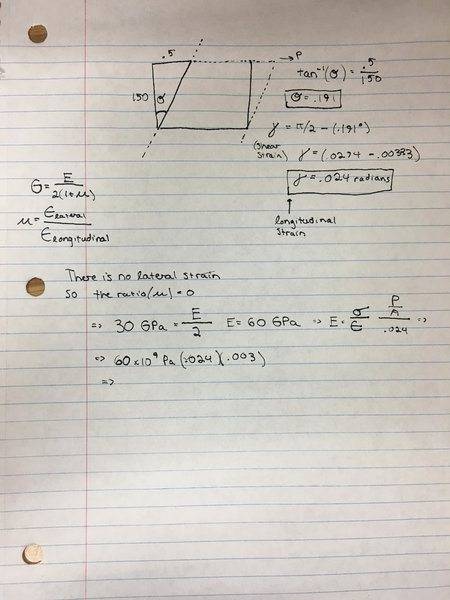 .5
→ P
150 θ
tan⁻¹(θ) = .5/150
θ = .191
γ = π/2 - (.191°)
(shear strain) γ = (.0274 - .00333)
γ = .024 radians
longitudinal
strain
G = E/2(1+μ)
μ = ϵlateral/ϵlongitudinal
There is no lateral strain
So the ratio(μ) = 0
=> 30 GPa = E/2 E = 60 GPa => E = σ/ϵ P/A/.024 =>
=> 60 x 10⁹ Pa (.024)(.003)
=>